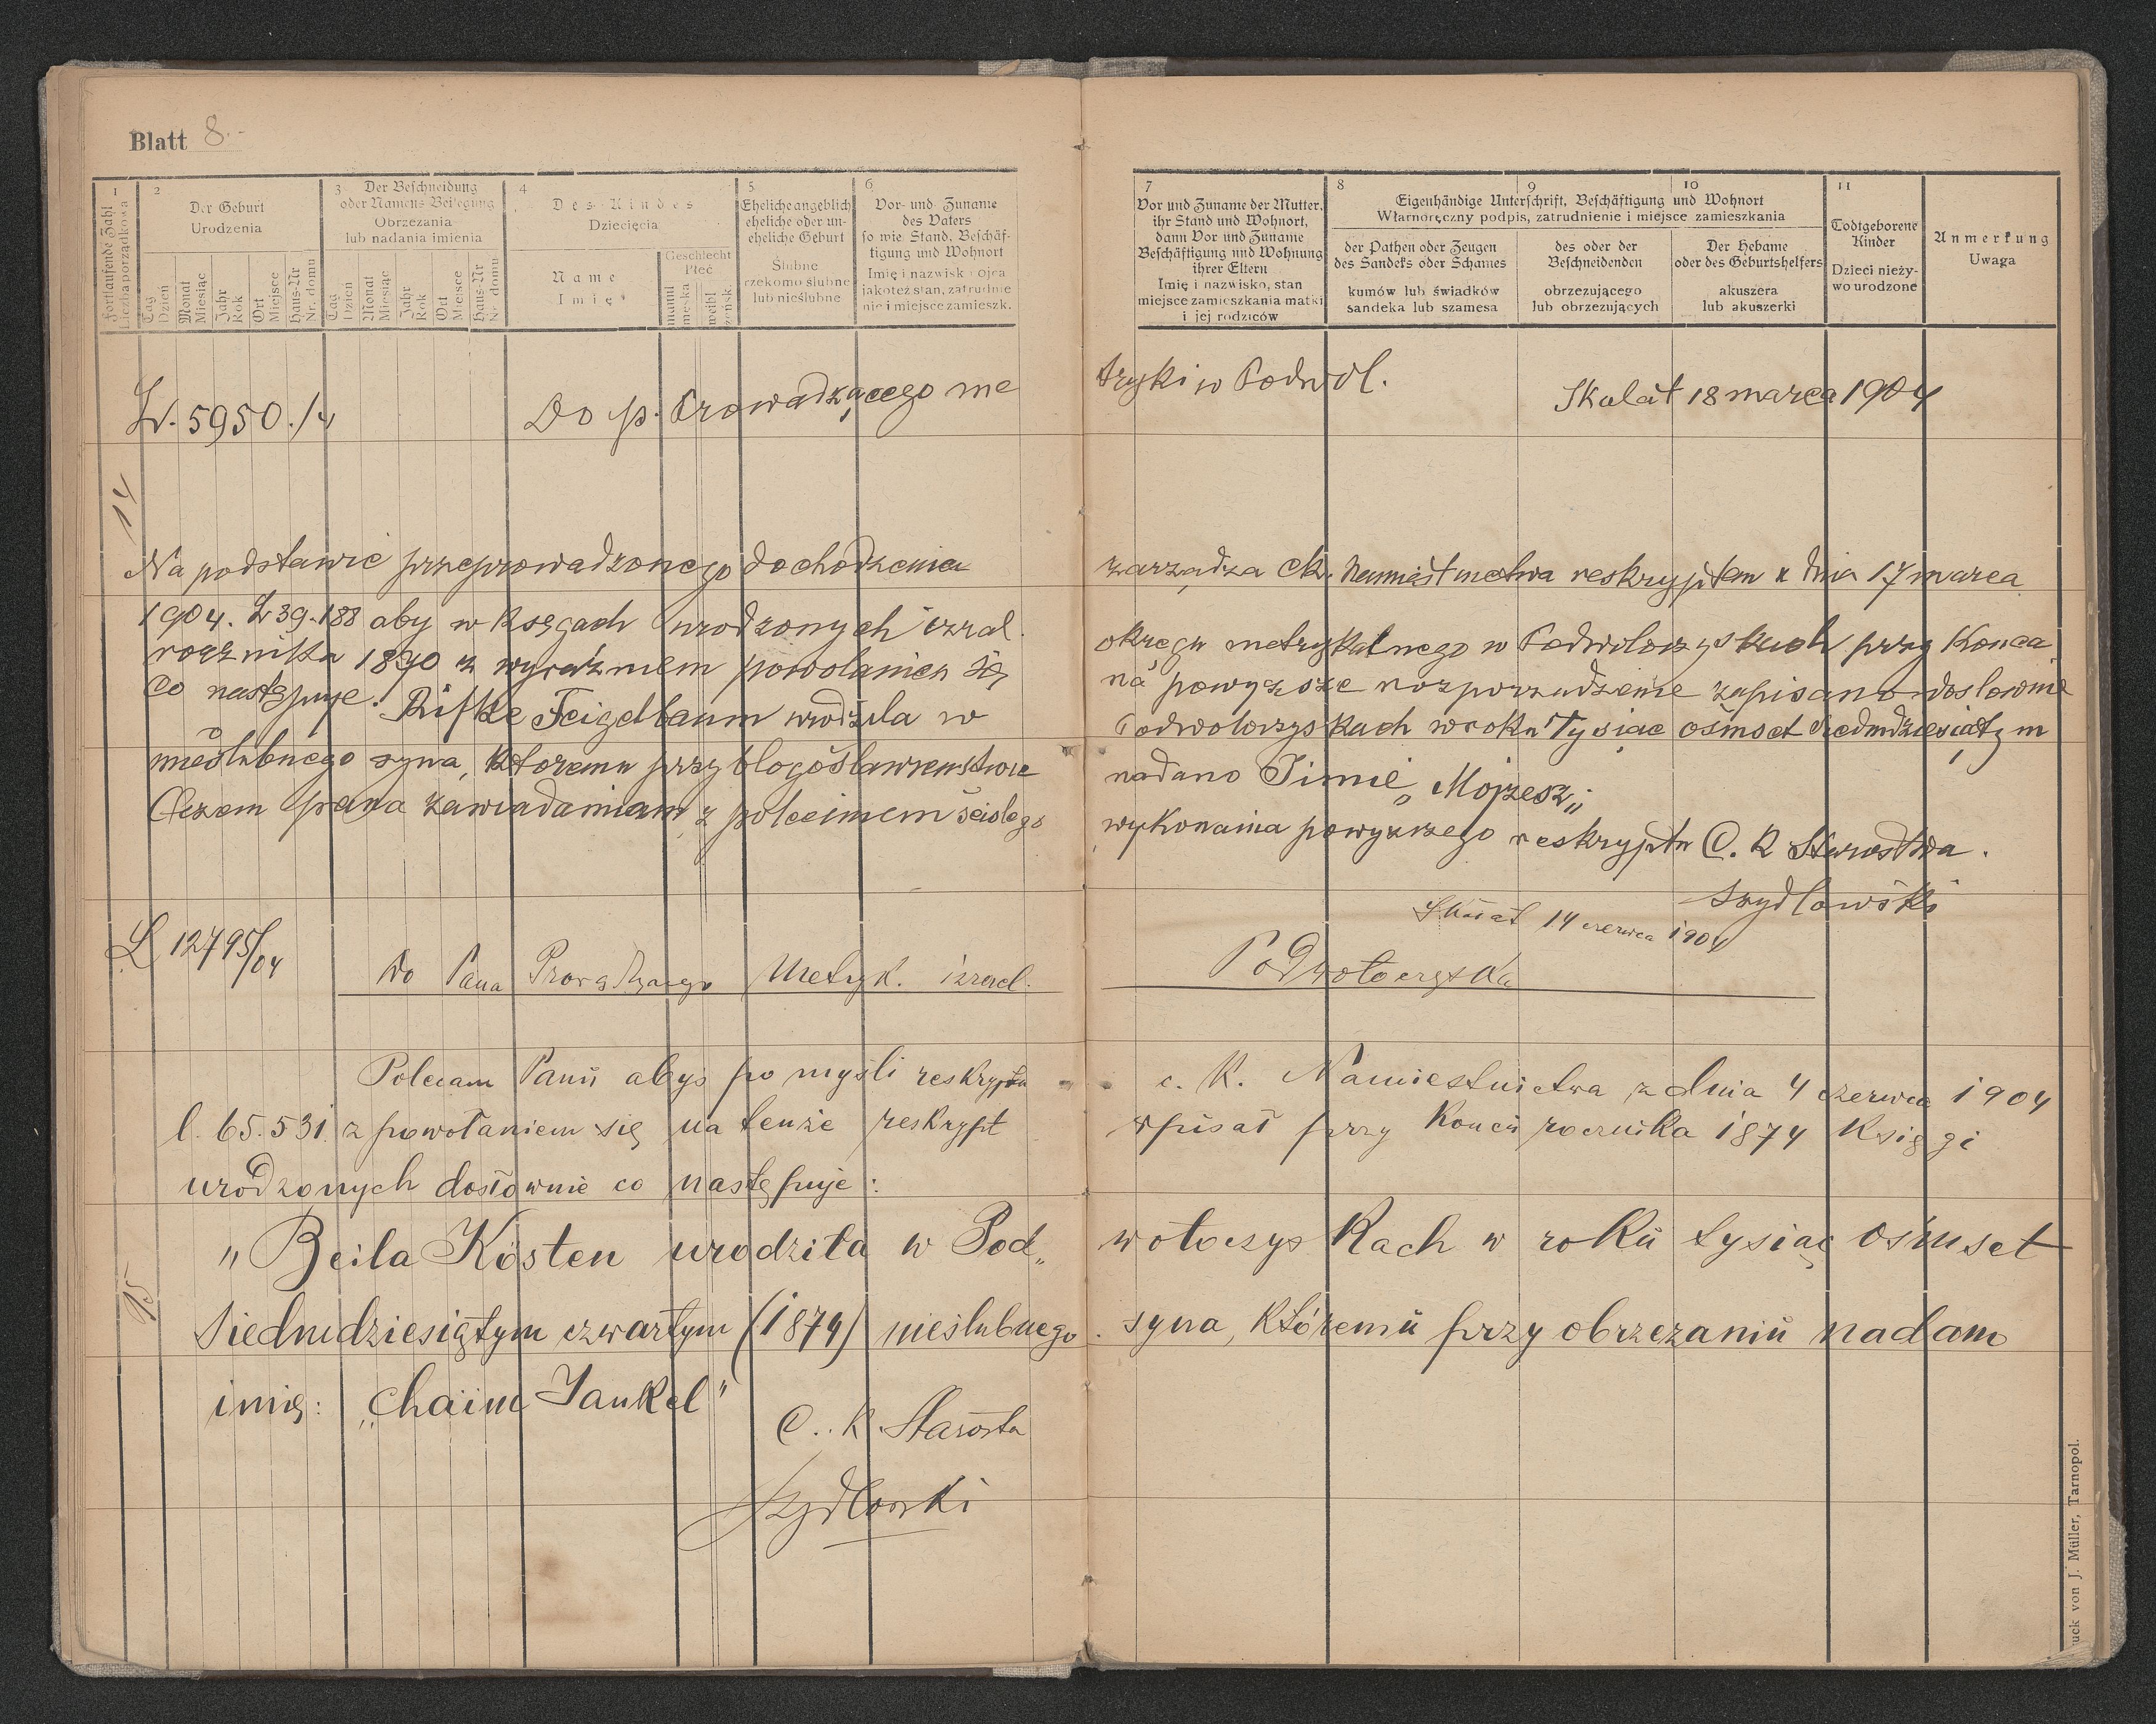 Blatt 8.-
1
Fortlaufende Zahl
Liczba porządkowa
2
Der Geburt
Urodzenia
Tag
Dzień
Monat
Miesiąc
Jahr
Rok
Ort
Miejsce
Haus-Nr
Nr. domu
3
Der Beschneidung
oder Namens-Beilegung
Obrzezania
lub nadania imienia
Tag
Dzień
Monat
Miesiąc
Jahr
Rok
Ort
Miejsce
Haus-Nr
Nr. domu
4
Des Kindes
Dziecięcia
Name
Imię
Geschlecht
Płeć
männl
męska
weibl
żeńsk.
5
Eheliche angeblich
eheliche oder un-
eheliche Geburt
Ślubne
rzekomo ślubne
lub nieślubne
6
Vor- und Zuname
des Vaters
so wie Stand, Beschäf-
tigung und Wohnort
Imię i nazwisko ojca
jakoteż stan, zatrudnie
nie i miejsce zamieszk.
7
Vor und Zuname der Mutter,
ihr Stand und Wohnort,
dann Vor und Zuname
Beschäftigung und Wohnung
ihrer Eltern
Imię i nazwisko, stan
miejsce zamieszkania matki
i jej rodziców
8
9
10
Eigenhändige Unterschrift, Beschäftigung und Wohnort
Własnoręczny podpis, zatrudnienie i miejsce zamieszkania
der Pathen oder Zeugen
des Sandeks oder Schames
kumów lub świadków
sandeka lub szamesa
des oder der
Beschneidenden
obrzezującego
lub obrzezujących
Der Hebame
oder des Geburtshelfers
akuszera
lub akuszerki
11
Todtgeborene
Kinder
Dzieci nieży-
wo urodzone
Anmerkung
Uwaga
L. 5950./4 Do p. Prowadzącego me tryki w Podwol. Skalat 18 marca 1904
14
Na podstawie przeprowadzonego dochodzenia zarządza Ck. Namiestnictwa reskryptem z dnia 17 marca
1904. L 39.188 aby w Księgach urodzonych izral. okręgu metrykalnego w Podwołoczyskach przy Końca
rocznika 1870 z wyraźniem powołaniem się na powyższe rozporządzenie zapisano dosłownie
co następuje. Rifke Feigelbaum urodziła w Podwołoczyskach w roku Tysiąc ośmset siedmdziesiątym
nieślubnego syna, któremu przy błogosławieństwie nadano Jimię „Mojżesz”
O czem pana zawiadamiam z poleceniem ścisłego wykonania powyższego reskryptu C. K Starostwa.
Szydłowski
L 12795/04 Skałat 14 czerwca 1904
Do Pana Prowadzącego Metryk. izrael. Podwołoczyska
Polecam Panu abyś po myśli reskryptu c. K. Namiestnictwa z dnia 4 czerwca 1904
l. 65.531. z powołaniem się na tenże reskrypt wpisał przy Końcu rocznika 1874 Księgi
urodzonych dosłownie co następuje:
15
„Beila Kösten urodziła w Pod„ wołoczys Kach w roku tysiąc ośmset
siedmdziesiątym czwartym (1874) nieślubnego syna, któremu przy obrzezaniu nadano
imię: „Chaim Jankel”
C. K. Starosta
Szydłowski
uck von J. Müller, Tarnopol.